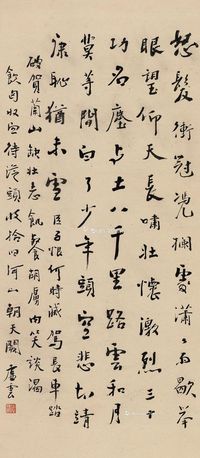 怒髮衝冠憑欄處瀟瀟雨歇
眼望仰天長嘯壯懷激烈三十
功名塵与土八千里路雲和月
莫等閒白了少年頭空悲切靖
康恥猶未雪臣子恨何時滅駕長車踏
破賀蘭山缺壯志飢餐胡虜肉笑談渴
飲匈奴血待從頭收拾旧河山朝天闕 虛雲